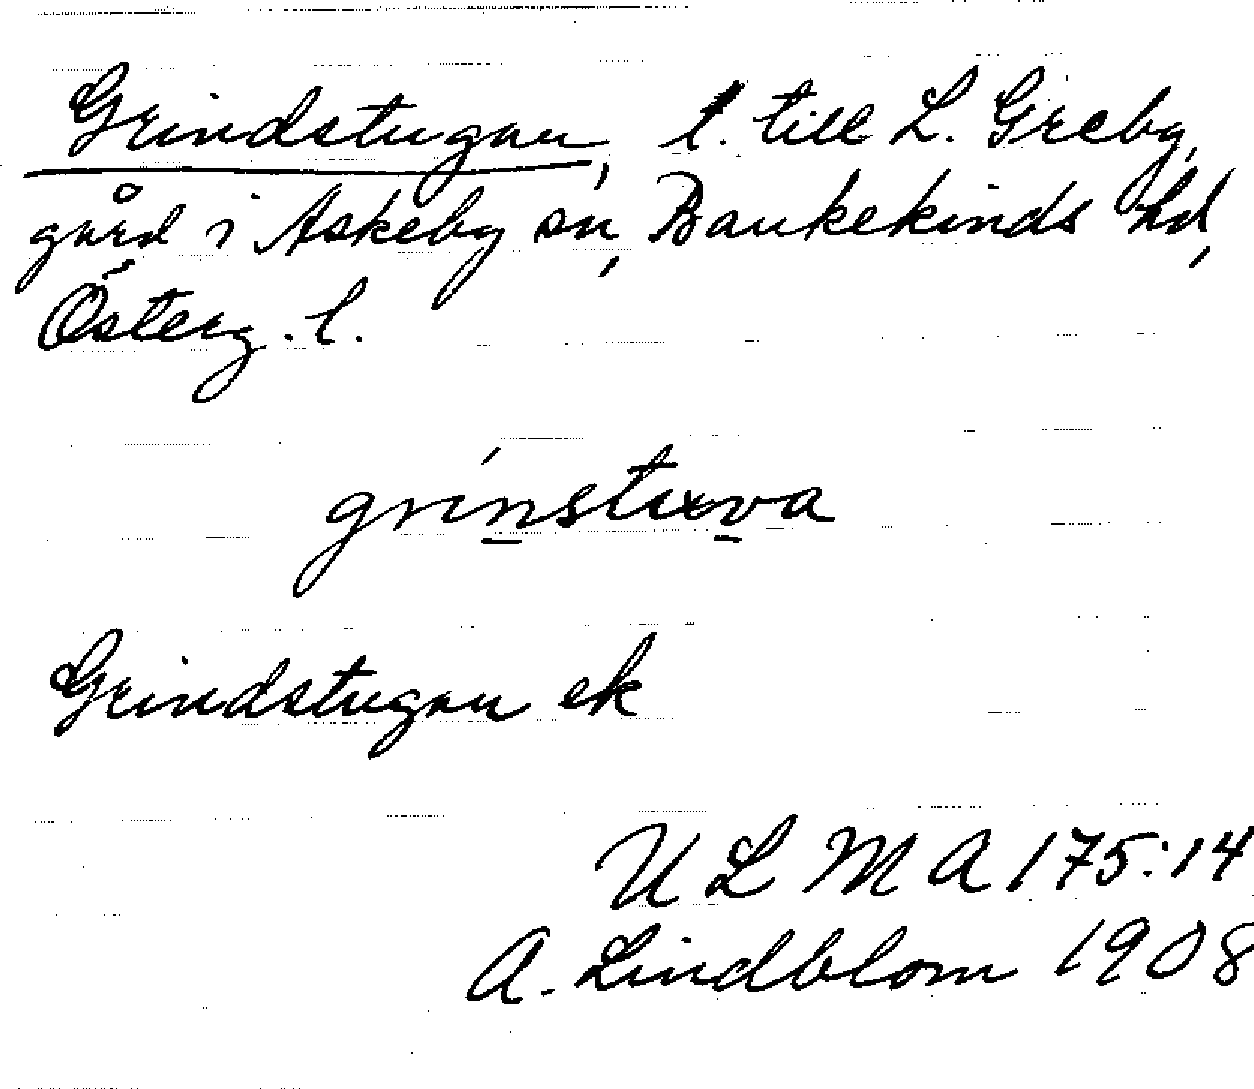 Grindstugan, l. till L. Greby,
gård i Askeby sn, Bankekinds hd,
Österg. l.
grinstuva
Grindstugan ek
ULMA 175:14
A. Lindblom 1908